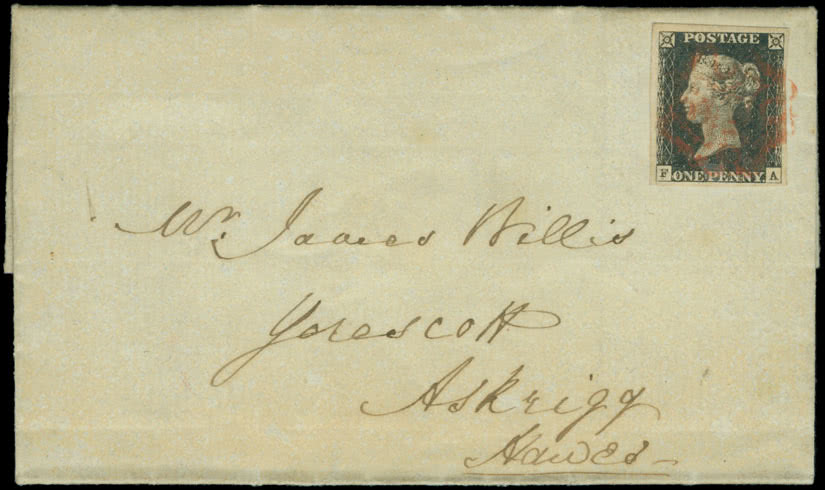 POSTAGE
F ONE PENNY A
Mr. James Willis
Yorescott
Askrigg
Hawes